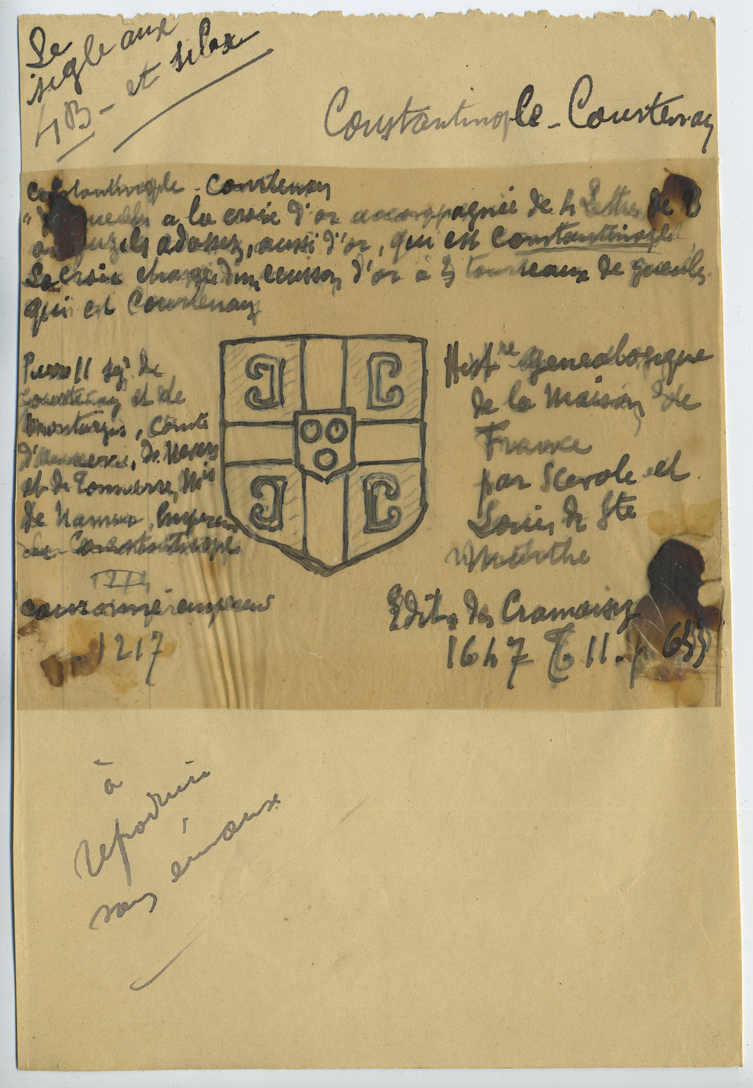 Le
sigle aux
4 B - et silex
Constantinople - Courtenay
Constantinople - Courtenay
"De gueules a la croix d'or accompagnée de 4 Lettres de B
adossez, aussi d'or, qui est Constantinople
La croix chargée d'un ecusson d'or à 3 tourteaux de gueules
qui est Courtenay
Pierre II sgr de
Courtenay et de
Montargis, Comte
d'Auxerre, de Nevers
et de Tonnerre, Mis
de Namur, Empereur
de Constantinople
couronné empereur
1217
Histre Genealogique
de la Maison de
France
par Scevole et
Louis de Ste
Marthe
Edit. des Cramoisy
1647 T II. p 655
à
reproduire
sans émaux